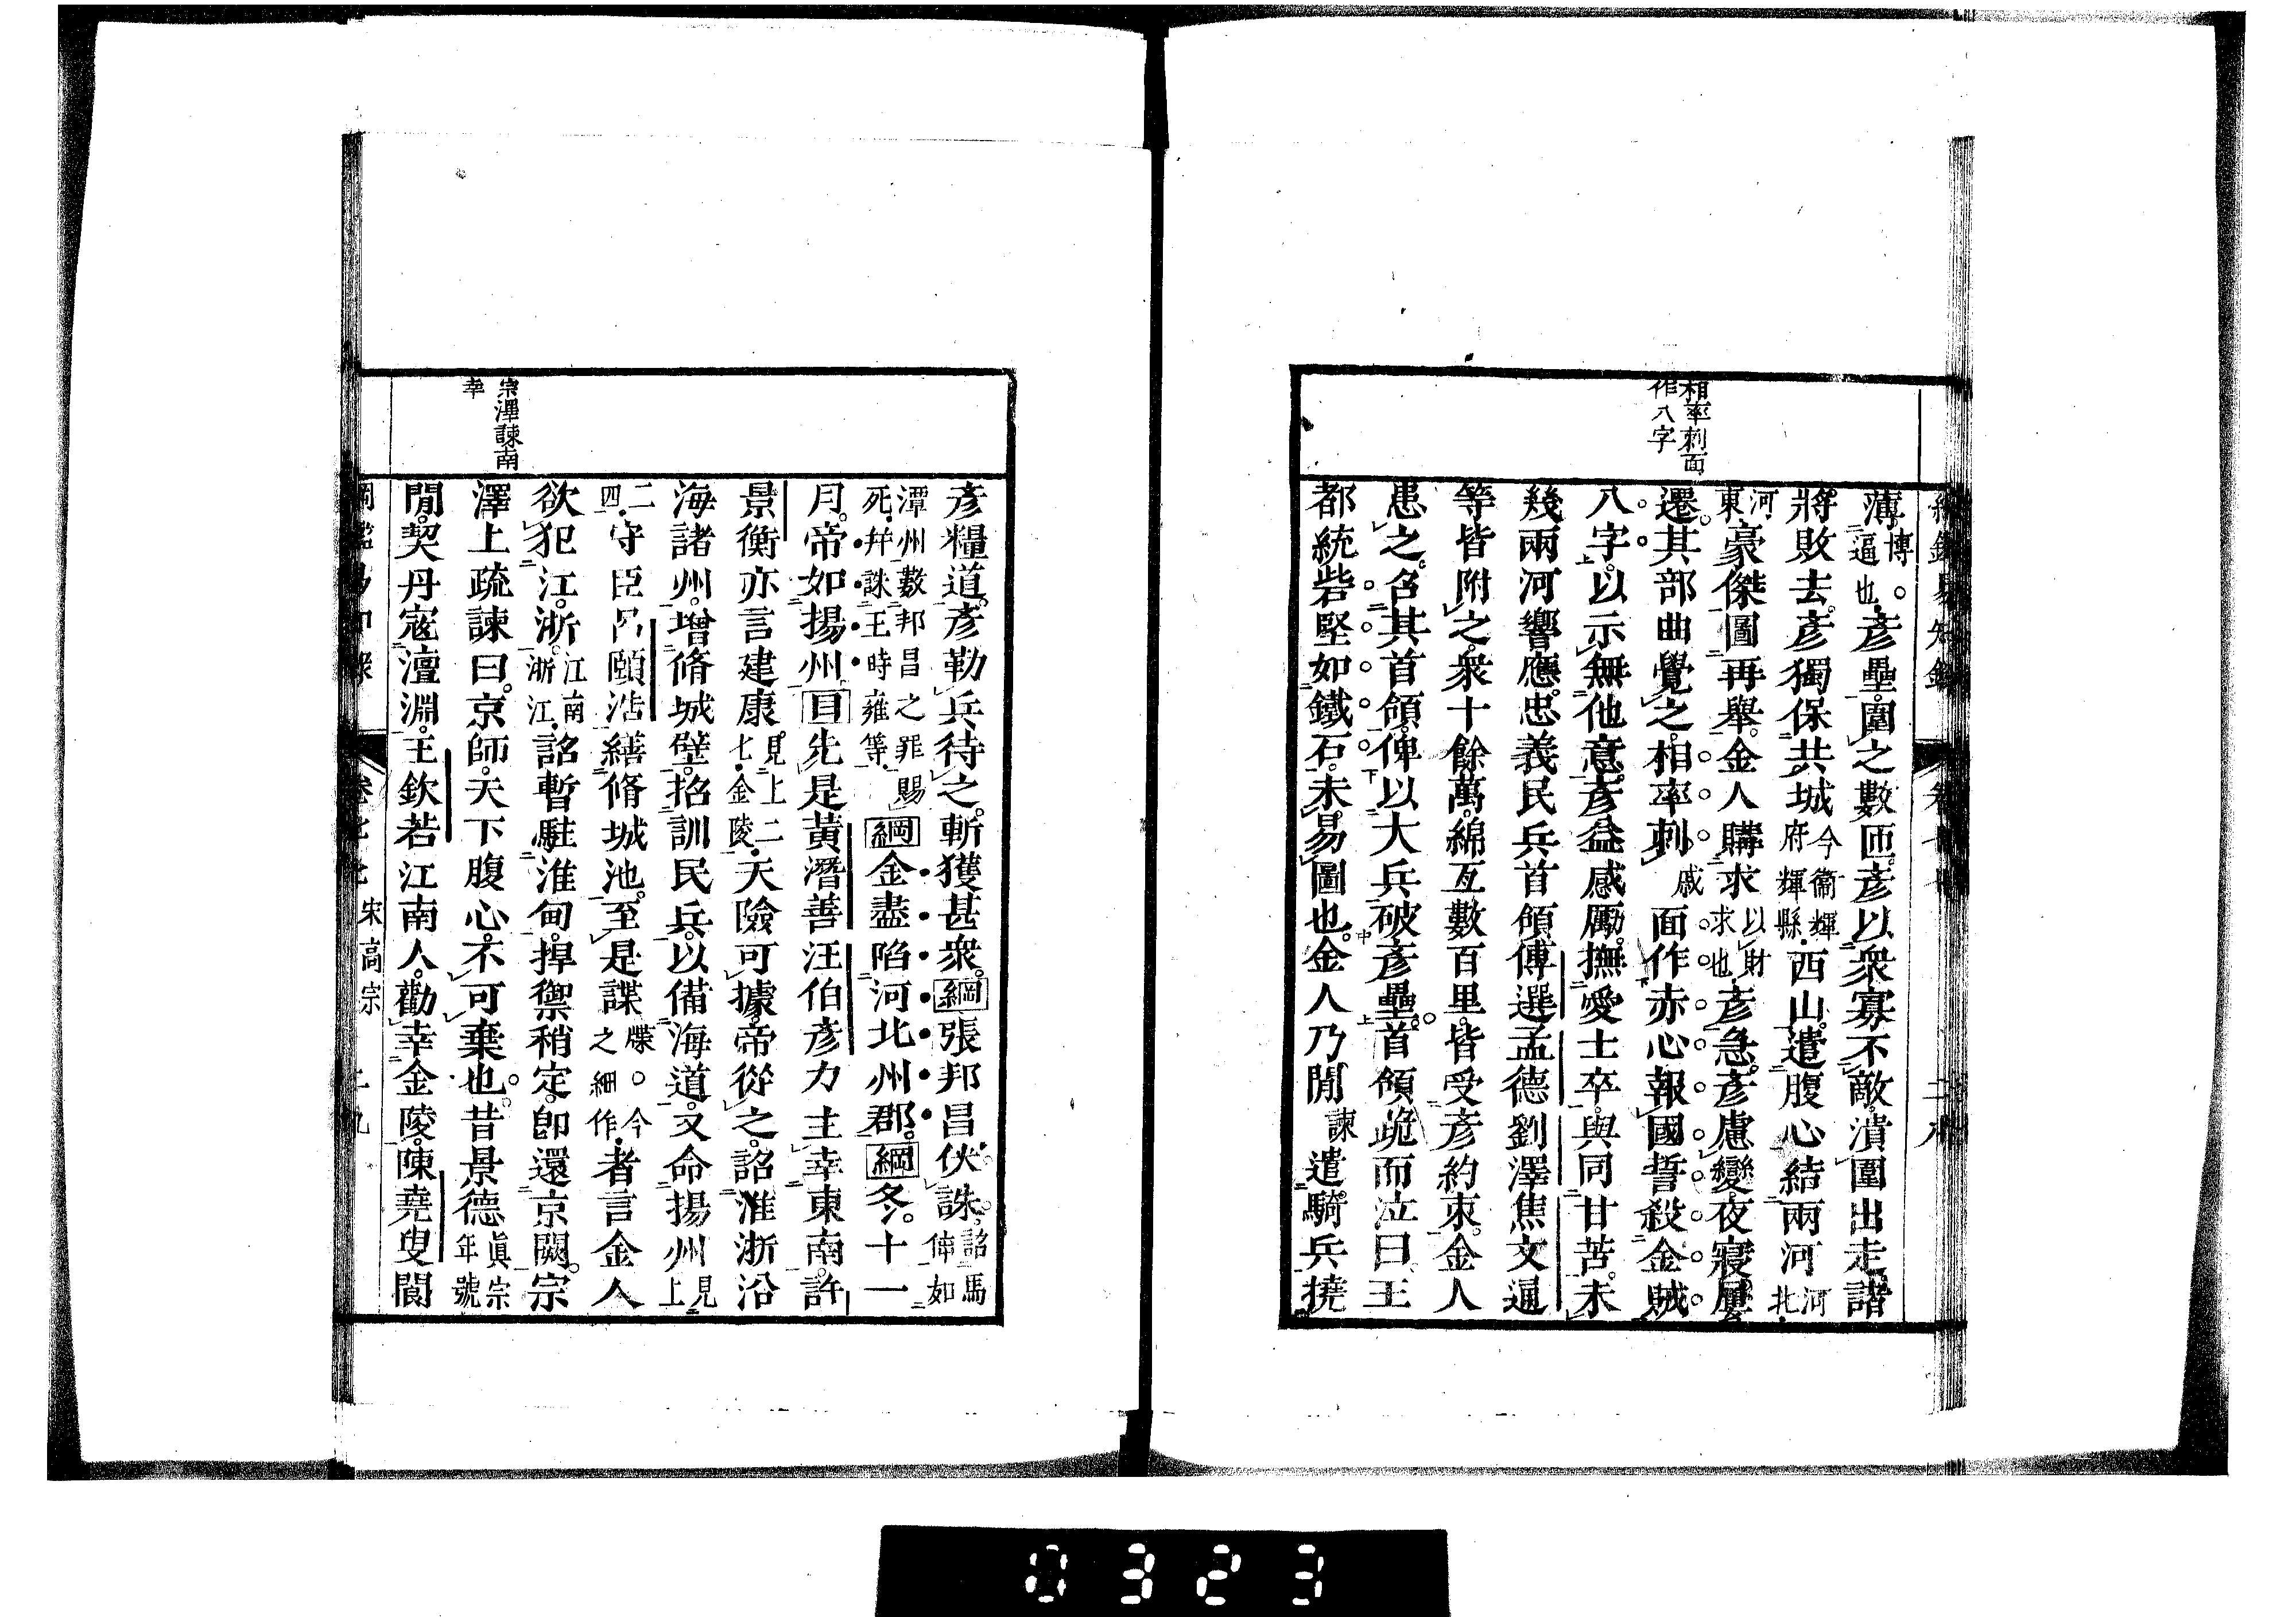 相率刺面
作八字
薄博○逼也彥壘圍之數匝彥以眾寡不敵潰圍出走諸
將敗去彥獨保共城今衞輝府輝縣西山遣腹心結兩河河北
河東豪傑圖再舉金人購求以財求也彥急彥慮變夜寢屢
遷其部曲覺之相率刺戚面作赤心報國誓殺金賊
八字以示無他意彥益感勵撫愛士卒與同甘苦未
幾兩河響應忠義民兵首領傅選孟德劉澤焦文通
等皆附之衆十餘萬綿亙數百里皆受彥約束金人
患之召其首領俾以大兵破彥壘首領跪而泣曰王
都統砦堅如鐵石未易圖也金人乃閒諫遣騎兵撓
彥糧道彥勒兵待之斬獲甚衆綱張邦昌伏誅詔馬伸如
潭州數邦昌之罪賜死并誅王時雍等綱金盡陷河北州郡綱冬十一
月帝如揚州目先是黃潛善汪伯彥力主幸東南許
景衡亦言建康見上二七金陵天險可據帝從之詔淮浙沿
海諸州增脩城壁招訓民兵以備海道又命揚州見上
二四守臣呂頤浩繕脩城池至是諜牒○今之細作者言金人
欲犯江浙江南浙江詔暫駐淮甸捍禦稍定卽還京闕宗
澤上疏諫曰京師天下腹心不可棄也昔景德眞宗年號
閒契丹寇澶淵王欽若江南人勸幸金陵陳堯叟閬
宗澤諫南
幸
卷七七 宋高宗 二九